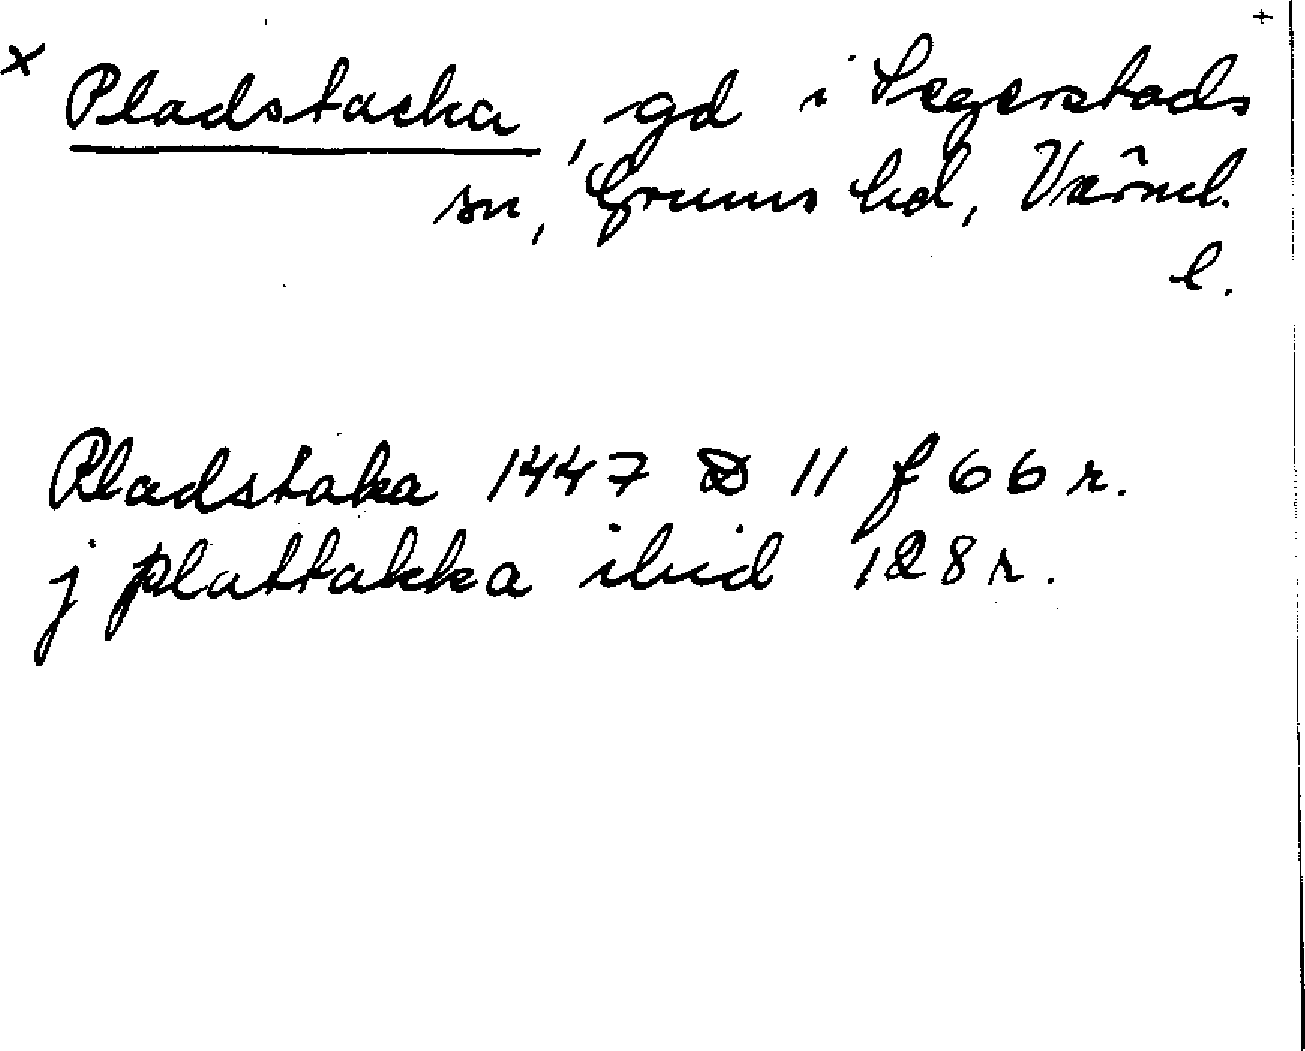 x Pladstacka, gd i Segerstads +
sn, Grums hd, Värml.
l.
Pladstaka 1447 D 11 f 66 r.
j plattakka ibid 128 r.